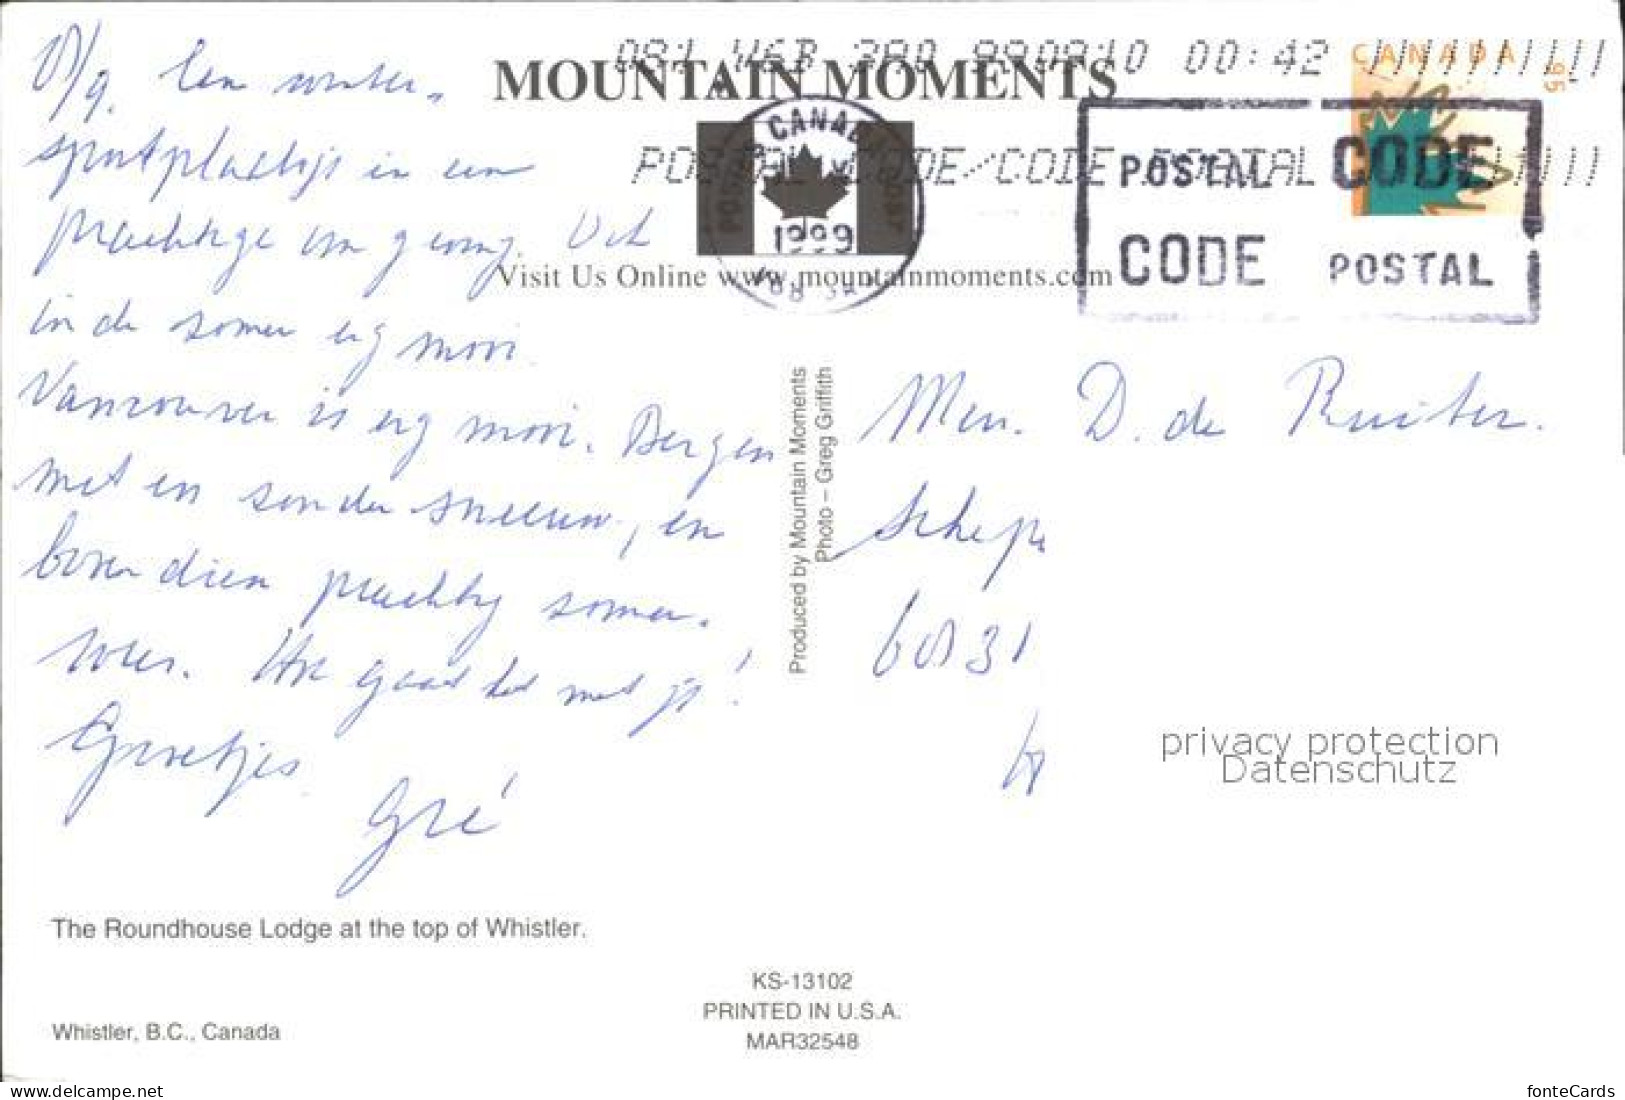 MOUNTAIN MOMENTS
Visit Us Online www.mountainmoments.com
CANADA 95
CANADA
1999
POSTAL CODE/CODE POSTAL
00:42
POSTAL CODE
CODE POSTAL
Een winter-
sportplaatsje in een
prachtige omgeving. Ook
in de somer erg mooi.
Vancouver is erg mooi. Bergen
met en sonder sneeuw, en
bovendien prachtig somer-
weer. Hoe gaat het met je!
Groetjes
Gré
Produced by Mountain Moments
Photo – Greg Griffith
Mevr. D. de Ruiter.
privacy protection
Datenschutz
The Roundhouse Lodge at the top of Whistler.
KS-13102
PRINTED IN U.S.A.
MAR32548
Whistler, B.C., Canada
www.delcampe.net
fonteCards